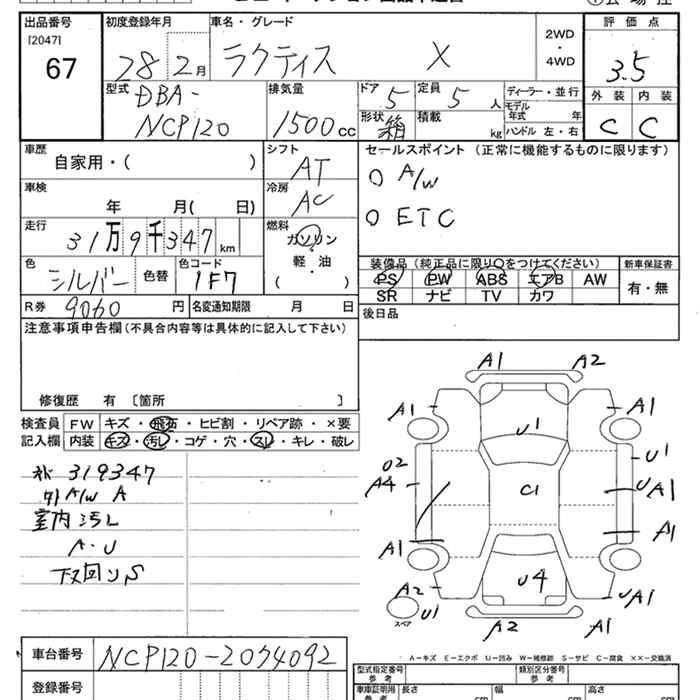 出品番号 初度登録年月 車名・グレード 2WD・4WD 評価点
[2047]
67 28 2月 ラクティス X 3.5
型式 DBA-NCP120 排気量 1500cc ドア 5 定員 5人 ディーラー・並行 外装 内装
形状 箱 積載 kg モデル年式 年 C C
ハンドル 左・右
車歴 自家用・( ) シフト AT セールスポイント (正常に機能するものに限ります)
車検 年 月( 日) 冷房 AC O A/W
走行 31万9千347km 燃料 ガソリン O ETC
軽・油
( )
色 シルバー 色替 色コード 1F7 装備品 (純正品に限り○をつけてください) 新車保証書
PS PW ABS エアB AW 有・無
SR ナビ TV カワ
R券 9060円 名変通知期限 月 日 後日品
注意事項申告欄 (不具合内容等は具体的に記入して下さい)
修復歴 有 〔箇所 〕
検査員 FW キズ・飛石・ヒビ割・リペア跡・×要
記入欄 内装 キズ・汚レ・コゲ・穴・スレ・キレ・破レ
319347
A/W A
室内汚レ
A・U
下回りS
A1 A2
A1 U1 A1
02 U1
A4 C1 UA1
A1 A1
A2 U4 UA1
スペア U1
A2 A1
A－キズ E－エクボ U－凹み W－補修跡 S－サビ C－腐食 ××－交換済
車台番号 NCP120-2074092
登録番号
型式指定番号 参考 類別区分番号 参考
車庫証明用 参考 長さ cm 幅 cm 高さ cm